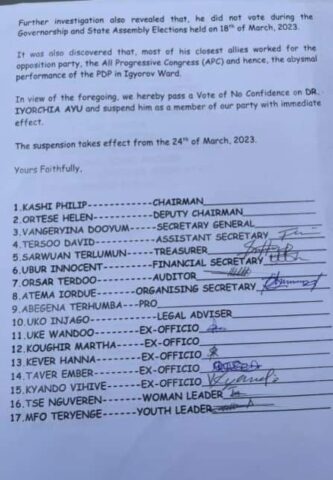 Further investigation also revealed that, he did not vote during the
Governorship and State Assembly Elections held on 18th of March, 2023.
It was also discovered that, most of his closest allies worked for the
opposition party, the All Progressive Congress (APC) and hence, the abysmal
performance of the PDP in Igyorov Ward.
In view of the foregoing, we hereby pass a Vote of No Confidence on DR.
IYORCHIA AYU and suspend him as a member of our party with immediate
effect.
The suspension takes effect from the 24th of March, 2023.
Yours Faithfully,
1.KASHI PHILIP-----------CHAIRMAN
2.ORTESE HELEN-----------DEPUTY CHAIRMAN
3.VANGERYINA DOOYUM-----SECRETARY GENERAL
4.TERSOO DAVID-----------ASSISTANT SECRETARY
5.SARWUAN TERLUMUN------TREASURER
6.UBUR INNOCENT----------FINANCIAL SECRETARY
7.ORSAR TERDOO-----------AUDITOR
8.ATEMA IORDUE----------ORGANISING SECRETARY
9.ABEGENA TERHUMBA---PRO
10.UKO INJAGO------------LEGAL ADVISER
11.UKE WANDOO----EX-OFFICIO
12.KOUGHIR MARTHA-----EX-OFFICO
13.KEVER HANNA-------EX-OFFICIO
14.TAVER EMBER-------EX-OFFICIO
15.KYANDO VIHIVE------EX-OFFICIO
16.TSE NGUVEREN------WOMAN LEADER
17.MFO TERYENGE-----YOUTH LEADER